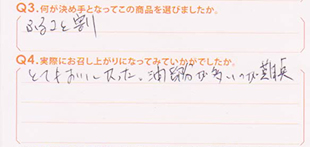 Q3.何が決め手となってこの商品を選びましたか。
ふるさと割
Q4.実際にお召し上がりになってみていかがでしたか。
とてもおいしかった。油脂分が多いのが難点